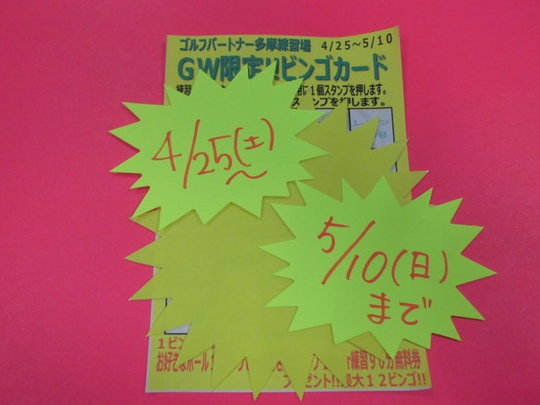 ゴルフパートナー多摩練習場 4/25～5/10
GW限定!!ビンゴカード
練習 に1個スタンプを押します。
スタンプを押します。
4/25(土)
～
5/10(日)
まで
1ビン
お好きなボール 練習90分無料券
プレゼント!!最大12ビンゴ!!